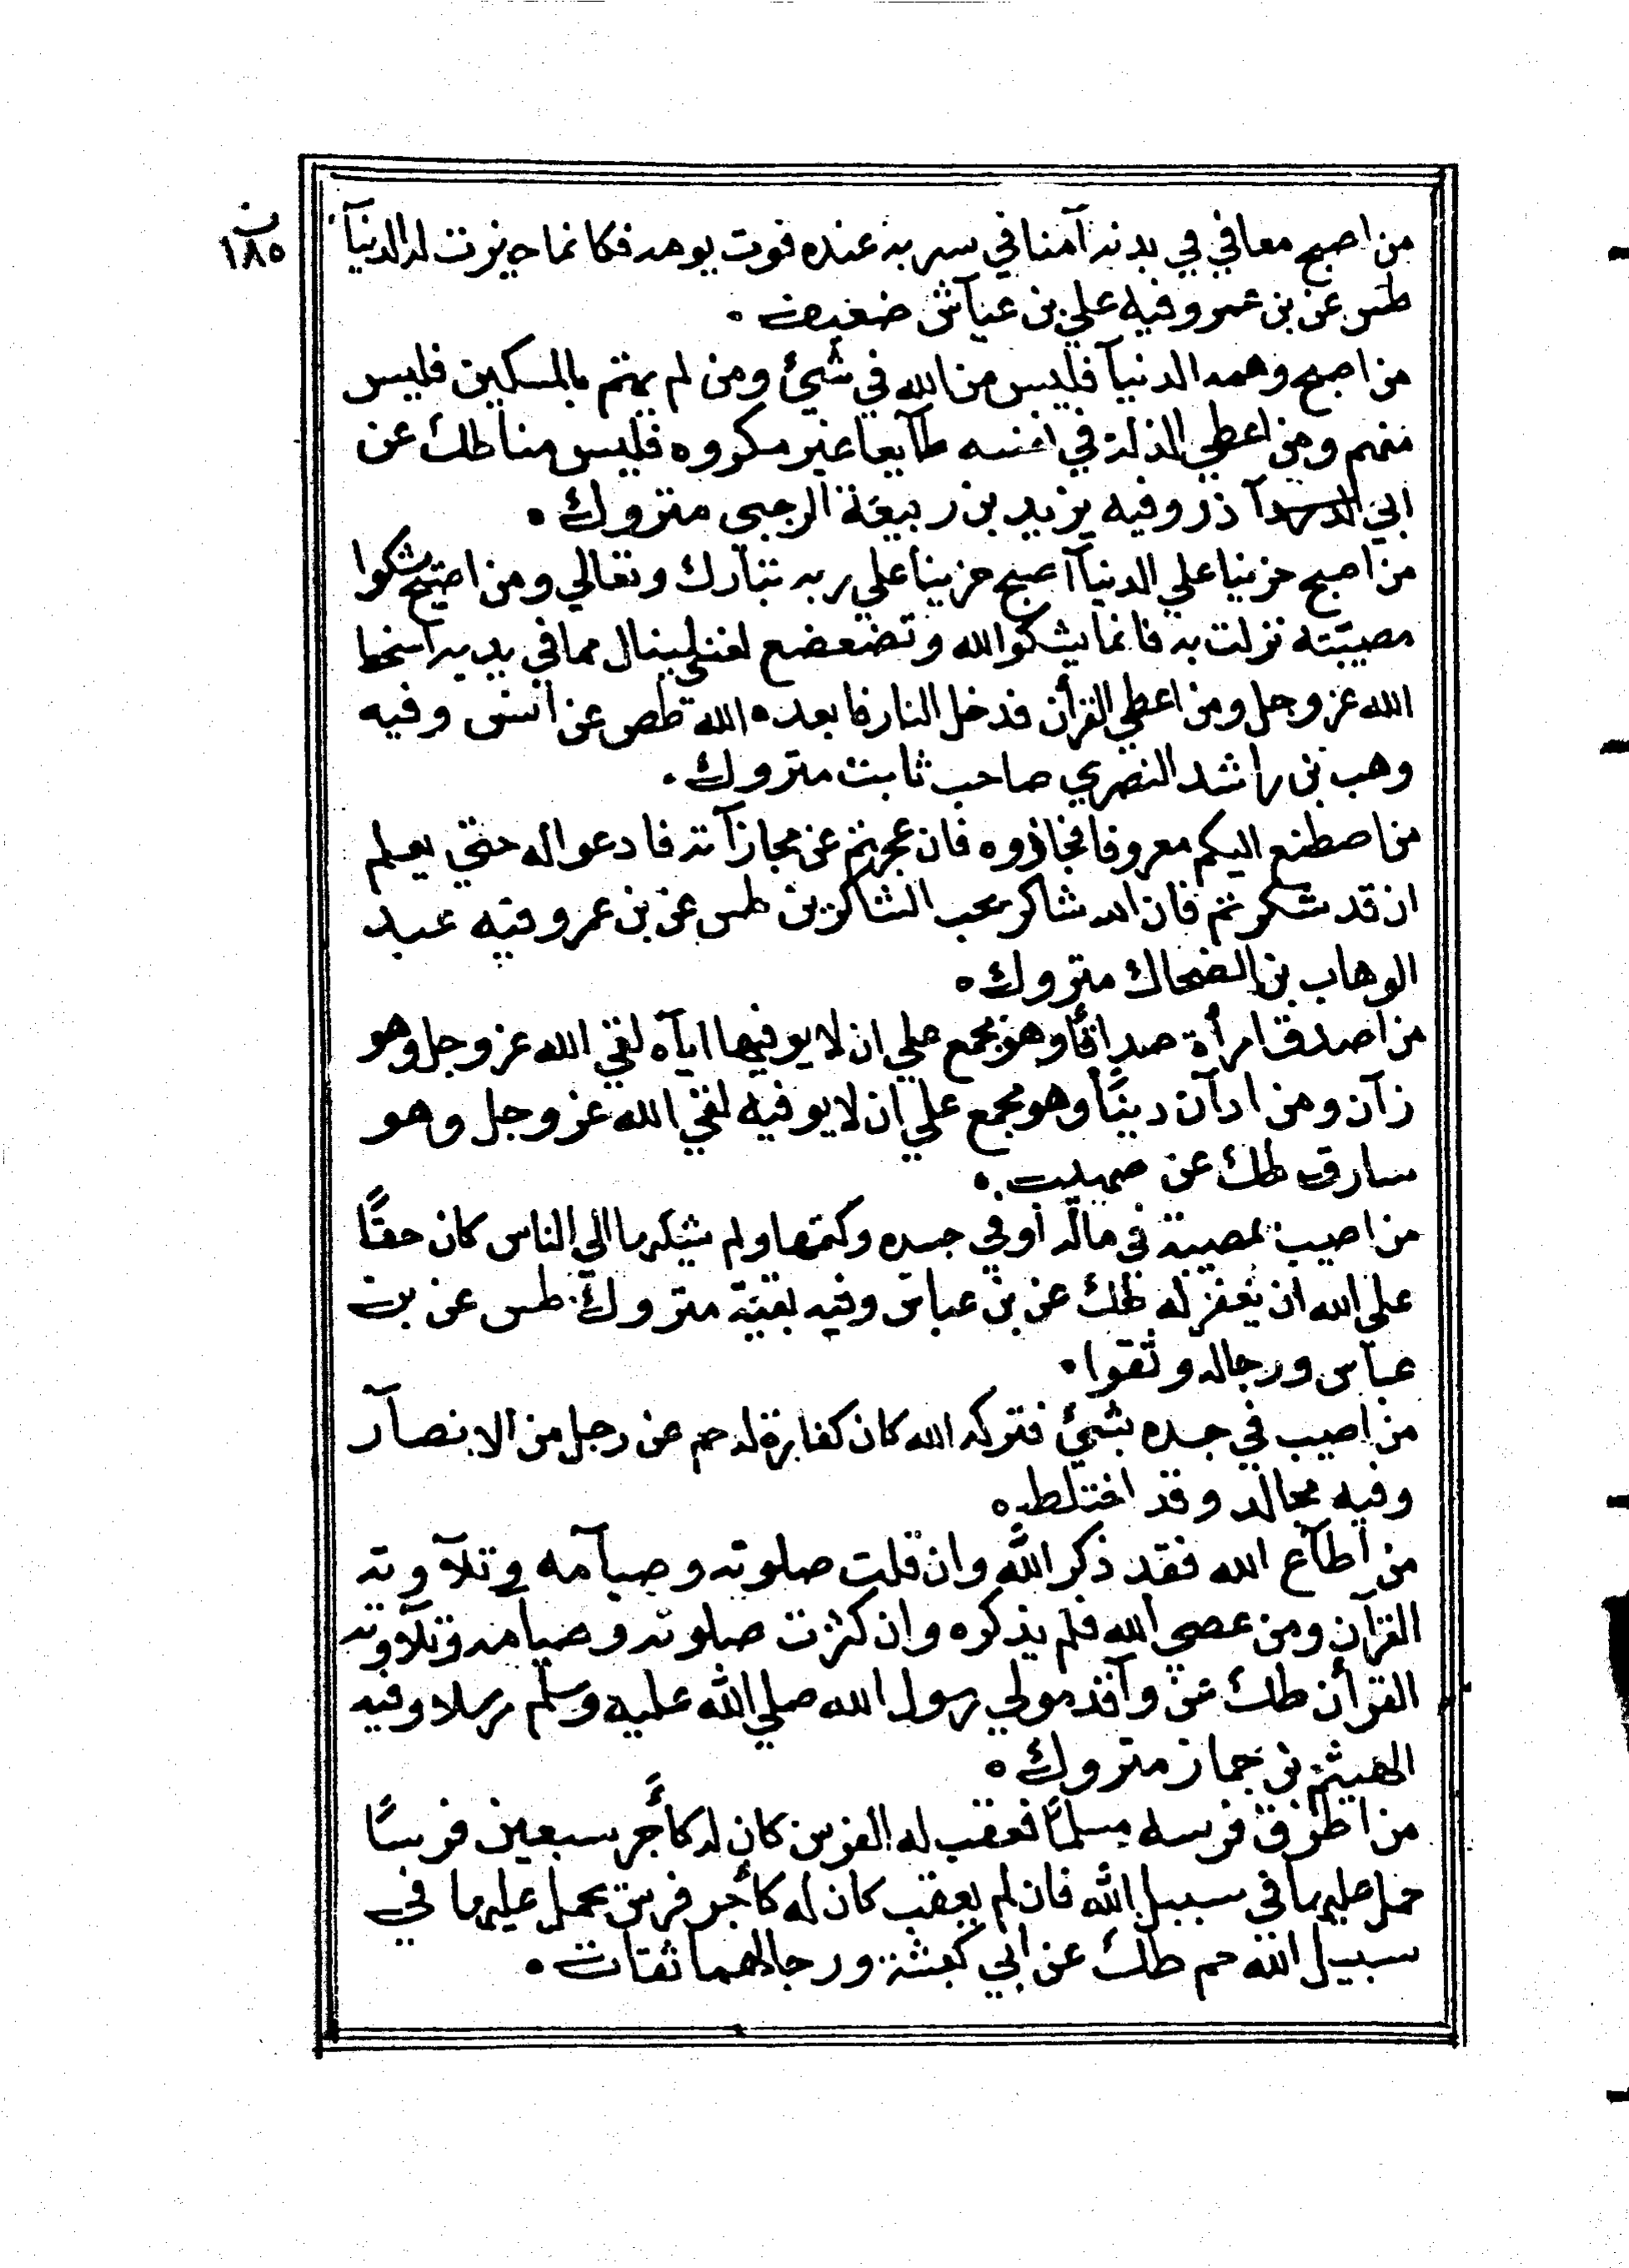 ن
١٨٥
من اصبح معافي في بدنه آمنا في سربه عنده قوت يومه فكانما حيزت له الدنيآ
طس عن بن عمر وفيه علي بن عيآش ضعيف ۰
من اصبح وهمه الدنيآ فليس من الله في شيئ ومن لم يهتم بالمسكين فليس
منهم ومن اعطي الذلة في نفسه طآيعا غير مكروه فليس منا طك عن
ابي ذر وفيه يزيد بن ربيعة الرحبى متروك ۰
من اصبح حزينا علي الدنيآ اصبح حزينا علي ربه تبآرك وتعالي ومن اصبح يشكوا
مصيبته نزلت به فانما يشكوا الله وتضعضع لغني لينال مما في يديه اسخط
الله عز وجل ومن اعطي القرأن فدخل النار فابعده الله طص عن انس وفيه
وهب بن راشد النصري صاحب ثابت متروك ۰
من اصطنع اليكم معروفا فجاذوه فان عجزتم عن مجازآته فادعوا له حتي يعلم
ان قد شكرتم فان الله شاكر يحب الشاكرين طس عن بن عمر وفيه عبد
الوهاب بن الضحاك متروك ۰
من اصدق امرأة صداقًا وهو مجمع علي ان لا يوفيها اياه لقي الله عز وجل وهو
زآن ومن ادآن دينًا وهو مجمع علي ان لا يوفيه لقي الله عز وجل وهو
سارق طك عن صهيب ۰
من اصيب بمصيبة في ماله أو في جسده وكتمها ولم يشكها الي الناس كان حقًا
علي الله ان يغفر له طك عن بن عباس وفيه بقية متروك طس عن بن
عباس ورجاله وثقوا ۰
من اصيب في جسده بشيئ فتركه الله كان كفارة له حم عن رجل من الانصآر
وفيه مجالد وقد اختلط ۰
من اطآع الله فقد ذكر الله وان قلت صلوته وصيآمه وتلآوته
القرآن ومن عصى الله فلم يذكره وان كثرت صلوته وصيامه وتلآوته
القرأن طك عن وآقد مولي رسول الله صلي الله عليه وسلم مرسلا وفيه
الهيثم بن جماز متروك ۰
من اطرق فرسه مسلمًا فعقب له الفرس كان له كأجر سبعين فرسًا
حمل عليها في سبيل الله فان لم يعقب كان له كأجر فرس يحمل عليها في
سبيل الله حم طك عن ابي كبشة ورجالهما ثقات ۰